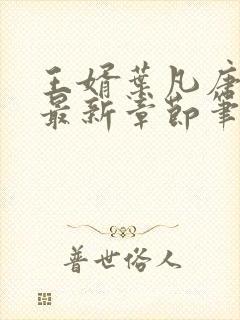 王婿叶凡唐
最新章节笔
普世俗人